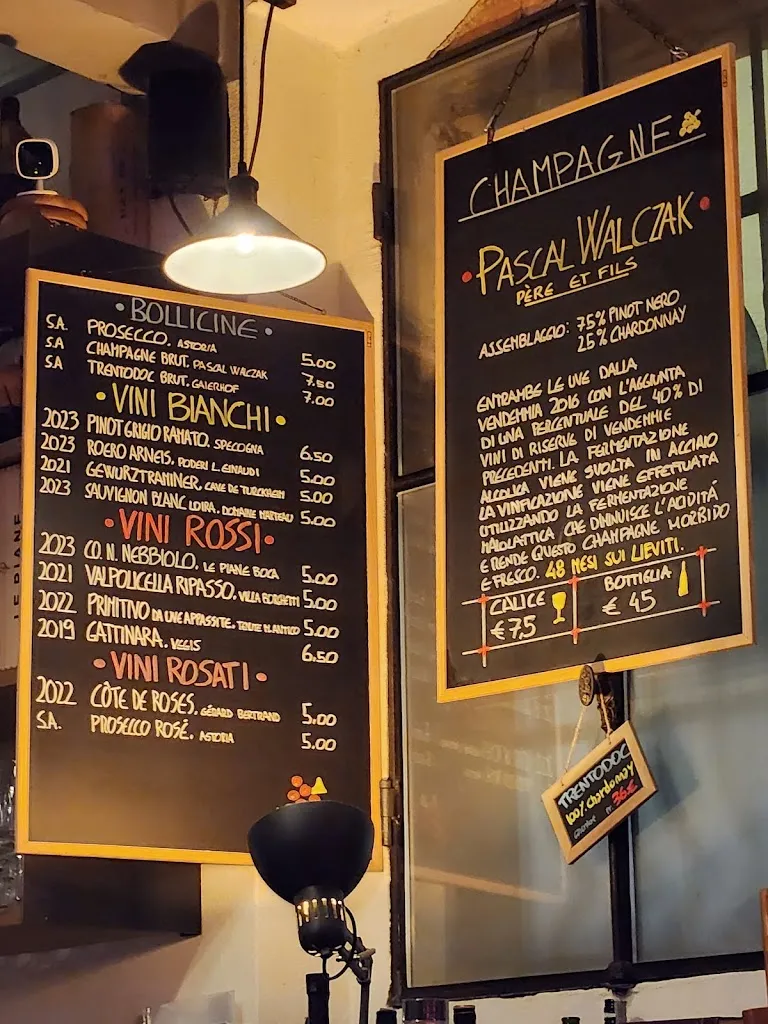 • BOLLICINE •
S.A. PROSECCO. ASTORIA 5.00
S.A CHAMPAGNE BRUT. PASCAL WALCZAK 7.50
S.A TRENTODOC BRUT. GAIERHOF 7.00
• VINI BIANCHI •
2023 PINOT GRIGIO RAMATO. SPECOGNA 6.50
2023 ROERO ARNEIS. PODERI L. EINAUDI 5.00
2021 GEWURZTRAMINER. CAVE DE TURCKHEIM 5.00
2023 SAUVIGNON BLANC LOIRA. DOMAINE MARTEAU 5.00
• VINI ROSSI •
2023 CO. N. NEBBIOLO. LE PIANE BOCA 5.00
2021 VALPOLICELLA RIPASSO. VILLA BORGHETTI 5.00
2022 PRIMITIVO DA UVE APPASSITE. 5.00
2019 GATTINARA. 6.50
• VINI ROSATI •
2022 CÔTE DE ROSES. GÉRARD BERTRAND 5.00
S.A. PROSECCO ROSÉ. ASTORIA 5.00
CHAMPAGNE
• PASCAL WALCZAK •
PÈRE ET FILS
ASSEMBLAGGIO: 75% PINOT NERO
25% CHARDONNAY
ENTRAMBE LE UVE DALLA
VENDEMMIA 2016 CON L'AGGIUNTA
DI UNA PERCENTUALE DEL 40% DI
VINI DI RISERVE DI VENDEMMIE
PRECEDENTI. LA FERMENTAZIONE
ALCOLICA VIENE SVOLTA IN ACCIAIO
LA VINIFICAZIONE VIENE EFFETTUATA
UTILIZZANDO LA FERMENTAZIONE
MALOLATTICA CHE DIMINUISCE L'ACIDITÁ
E RENDE QUESTO CHAMPAGNE MORBIDO
E FRESCO. 48 MESI SUI LIEVITI.
CALICE
€ 7,5
BOTTIGLIA
€ 45
TRENTODOC
100% chardonnay
36€
LE PIANE